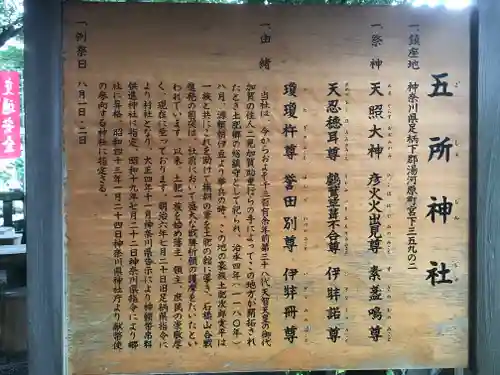 五所神社
一、鎮座地 神奈川県足柄下郡湯河原町宮下三五九の二
一、祭神 天照大神 彦火火出見尊 素盞鳴尊
天忍穂耳尊 鸕鶿草葺不合尊 伊弉諾尊
瓊瓊杵尊 誉田別尊 伊弉冊尊
一、由緒
当社は、今からおよそ千三百有余年前第三十八代天智天皇の御代
加賀の住人二見加賀助重行らの手によってこの地方が開拓され
たとき土肥郷の総鎮守として祀られ、治承四年(一一八〇年)
八月、源頼朝伊豆より挙兵の時、この地の豪族土肥次郎実平は
一族と共にこれを助けて
石橋山合戦
われています。以来、土肥一族を始め藩主、領主、庶民の崇敬厚
く、現在に至っております。明治六年七月三十日旧足柄県指令に
より村社となり、大正四年十一月神奈川県告示により神饌幣帛料
供進神社に指定、昭和十九年七月二十二日神奈川県指令により郷
社に昇格、昭和四十三年一月二十四日神奈川県神社庁より献幣使
の参向する神社に指定さる。
一、例祭日 八月一日、二日